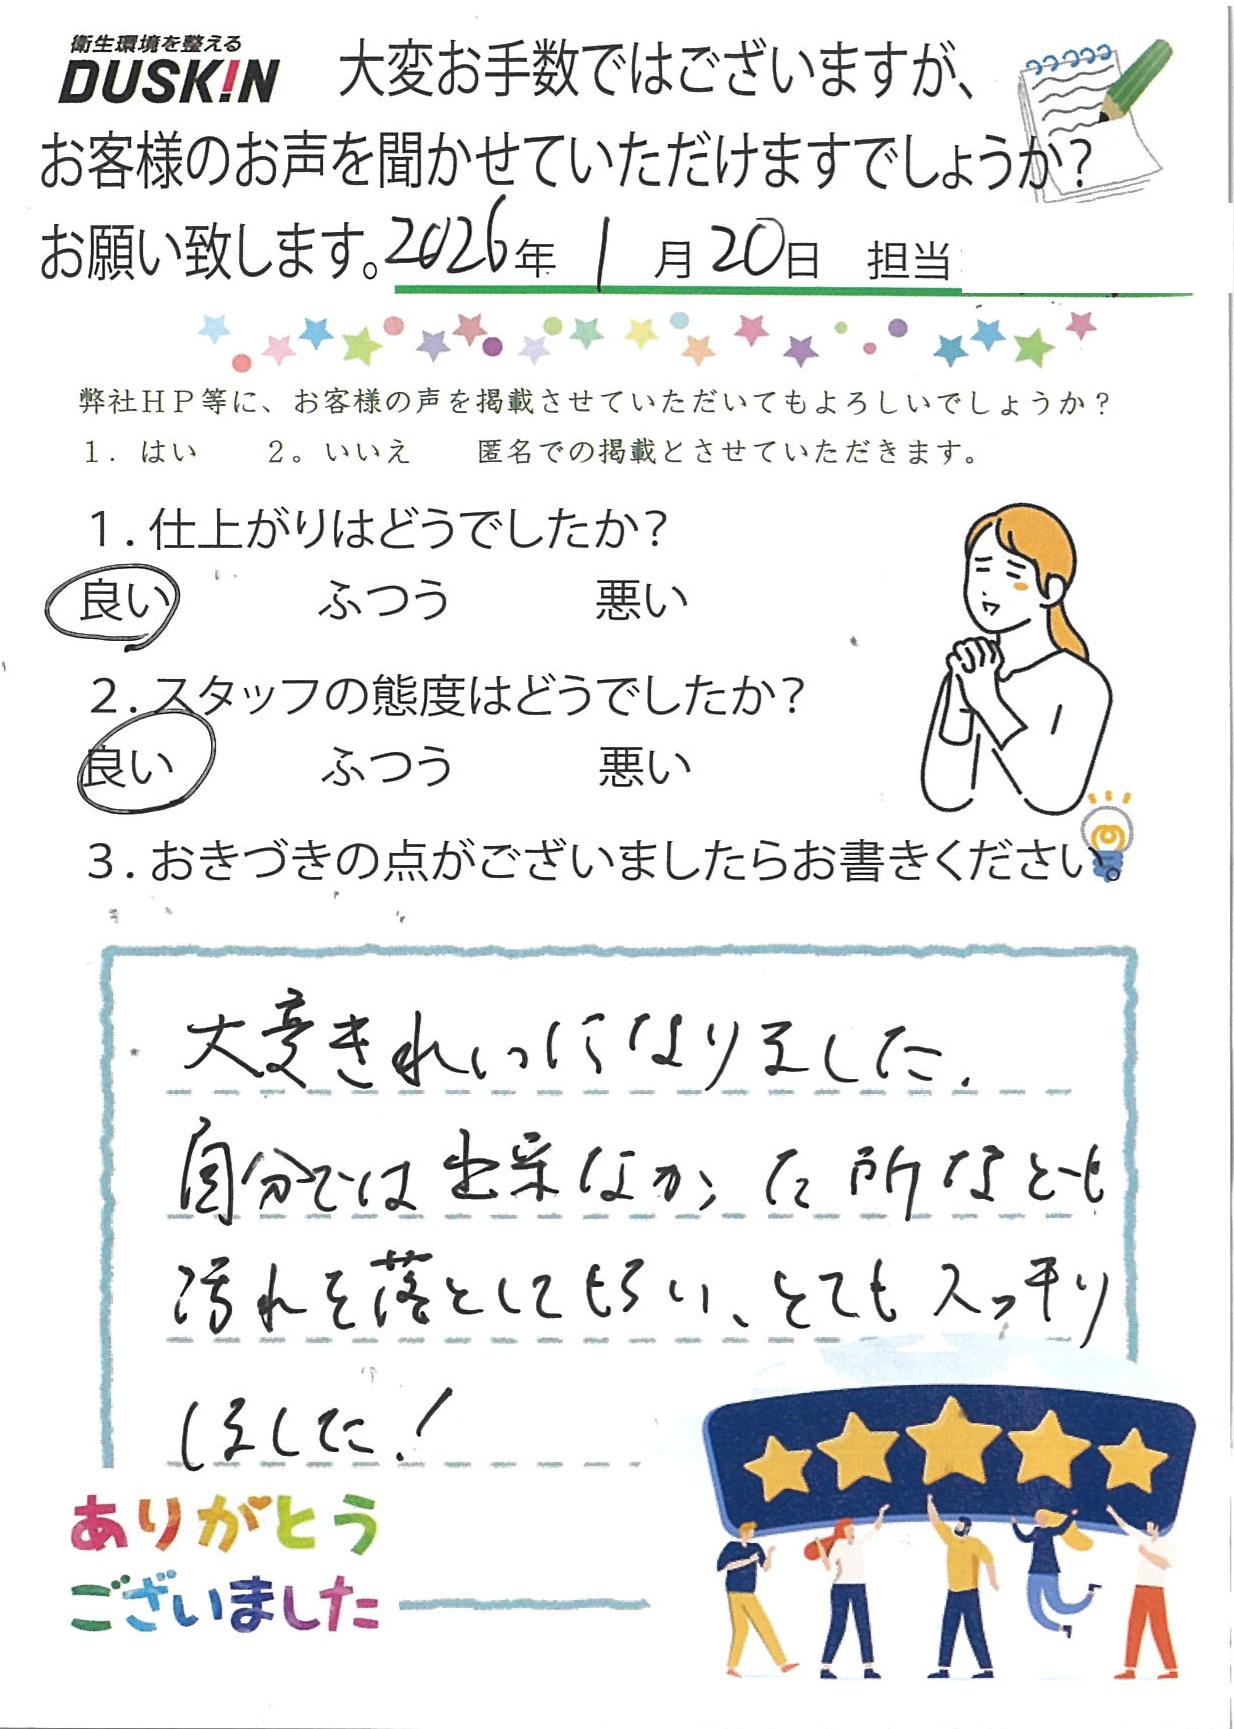 衛生環境を整える
DUSKIN
大変お手数ではございますが、
お客様のお声を聞かせていただけますでしょうか?
お願い致します。2026年 1月20日 担当
弊社HP等に、お客様の声を掲載させていただいてもよろしいでしょうか?
1. はい 2。いいえ 匿名での掲載とさせていただきます。
1.仕上がりはどうでしたか?
良い ふつう 悪い
2.スタッフの態度はどうでしたか?
良い ふつう 悪い
3.おきづきの点がございましたらお書きください。
大変きれいになりました.
自分では出来なかった所なども
汚れを落としてもらい、とてもスッキリ
しました!
ありがとう
ございました